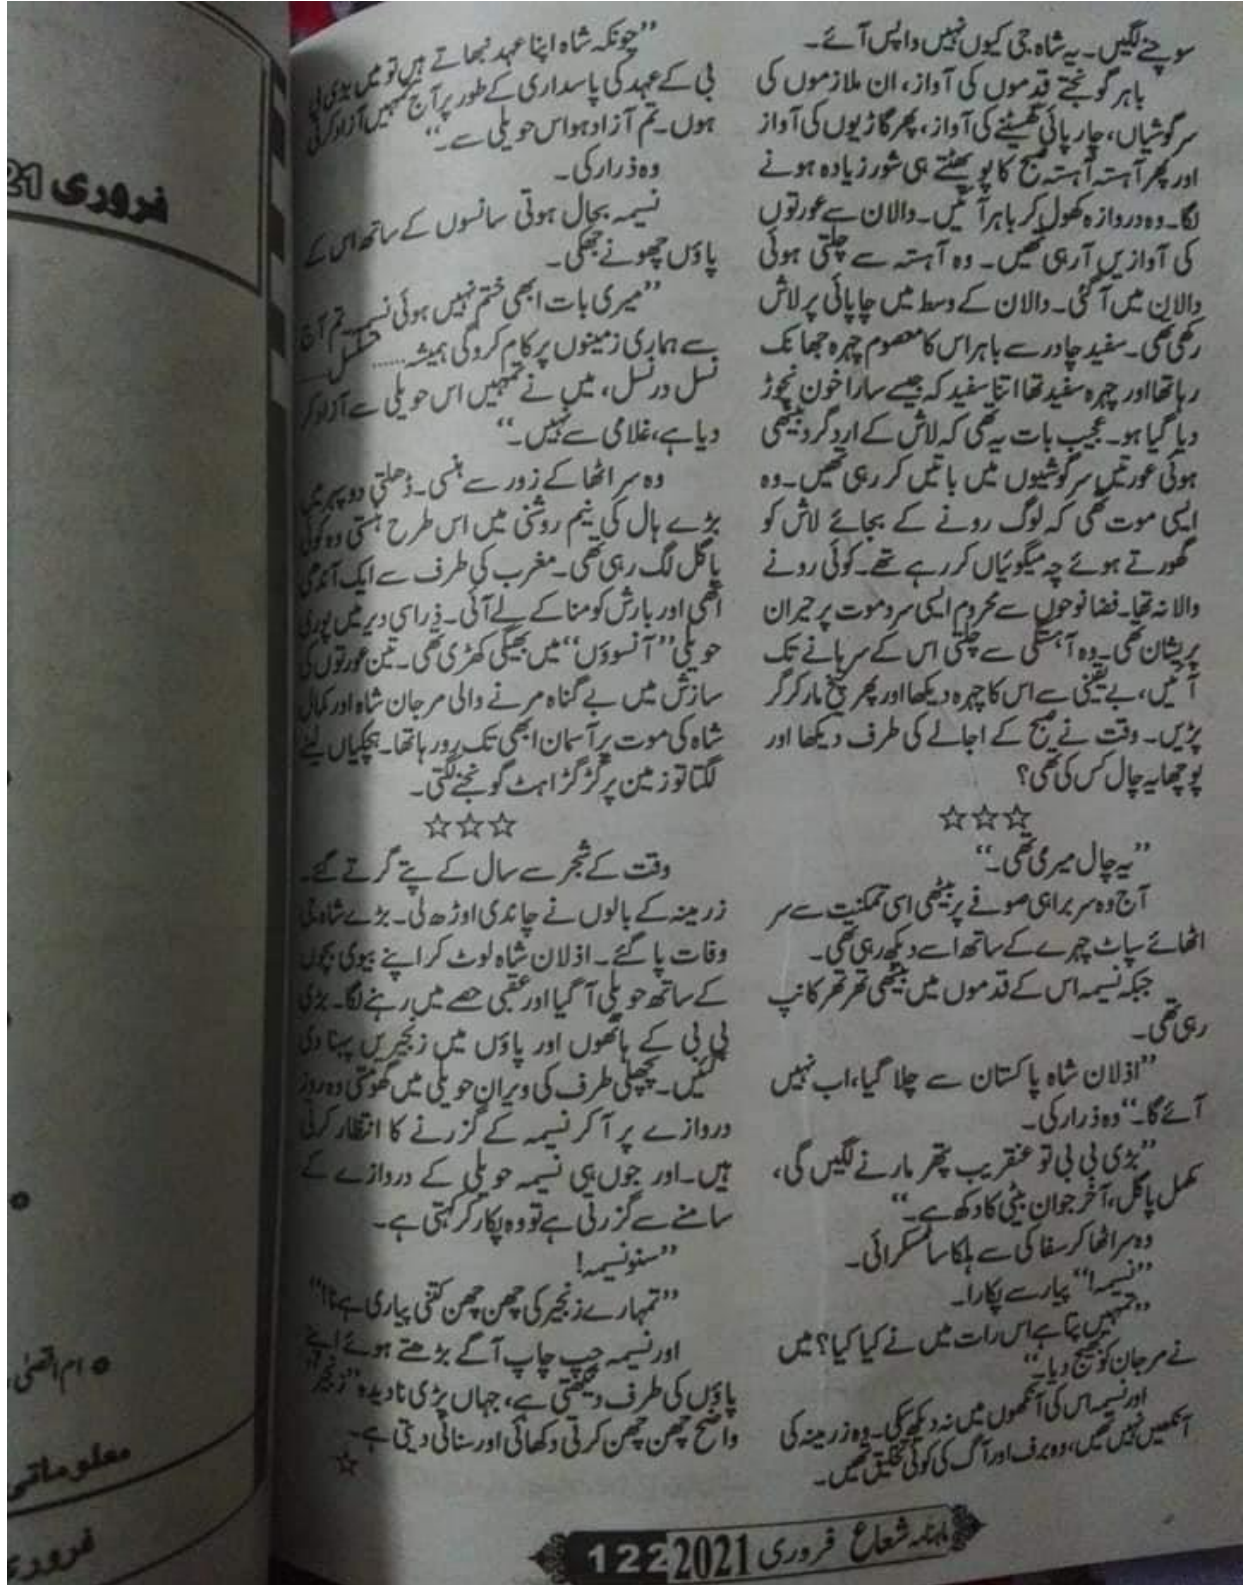 سوچنے لگیں۔ یہ شاہ جی کیوں نہیں واپس آئے۔
باہر گونجتے قدموں کی آواز، ان ملازموں کی
سرگوشیاں، چارپائی گھسیٹنے کی آواز، پھر گاڑیوں کی آواز
اور پھر آہستہ آہستہ صبح کا پو پھٹتے ہی شور زیادہ ہونے
لگا۔ وہ دروازہ کھول کر باہر آئیں۔ دالان سے عورتوں
کی آوازیں آ رہی تھیں۔ وہ آہستہ سے چلتی ہوئی
دالان میں آ گئی۔ دالان کے وسط میں چاپائی پر لاش
رکھی تھی۔ سفید چادر سے باہر اس کا معصوم چہرہ جھانک
رہا تھا اور چہرہ سفید تھا اتنا سفید کہ جیسے سارا خون نچوڑ
دیا گیا ہو۔ عجیب بات یہ تھی کہ لاش کے ارد گرد بیٹھی
ہوئی عورتیں سرگوشیوں میں باتیں کر رہی تھیں۔ وہ
ایسی موت تھی کہ لوگ رونے کے بجائے لاش کو
گھورتے ہوئے چہ میگوئیاں کر رہے تھے۔ کوئی رونے
والا نہ تھا۔ فضا نوحوں سے محروم ایسی سرد موت پر حیران
پریشان تھی۔ وہ آہستگی سے چلتی اس کے سرہانے تک
آئیں، بے یقینی سے اس کا چہرہ دیکھا اور پھر چیخ مار کر گر
پڑیں۔ وقت نے صبح کے اجالے کی طرف دیکھا اور
پوچھا یہ چال کس کی تھی؟
☆☆☆
”یہ چال میری تھی۔“
آج وہ سربراہی صوفے پر بیٹھی اسی تمکنیت سے سر
اٹھائے سپاٹ چہرے کے ساتھ اسے دیکھ رہی تھی۔
جبکہ نسیمہ اس کے قدموں میں بیٹھی تھر تھر کانپ
رہی تھی۔
”اذلان شاہ پاکستان سے چلا گیا، اب نہیں
آئے گا۔“ وہ ذرا رکی۔
”بڑی بی بی تو عنقریب پتھر مارنے لگیں گی،
مکمل پاگل، آخر جوان بیٹی کا دکھ ہے۔“
وہ سر اٹھا کر سفاکی سے ہلکا سا مسکرائی۔
”نسیمہ!“ پیار سے پکارا۔
”تمہیں پتا ہے اس رات میں نے کیا کیا؟ میں
نے مرجان کو بھیج دیا۔“
اور نسیمہ اس کی آنکھوں میں نہ دیکھ سکی۔ وہ زرمینہ کی
آنکھیں نہیں تھیں، وہ برف اور آگ کی کوئی تخلیق تھیں۔
”چونکہ شاہ اپنا عہد نبھاتے ہیں تو میں بڑی بی
بی کے عہد کی پاسداری کے طور پر آج تمہیں آزاد کرتی
ہوں۔ تم آزاد ہو اس حویلی سے۔“
وہ ذرا رکی۔
نسیمہ بحال ہوتی سانسوں کے ساتھ اس کے
پاؤں چھونے جھکی۔
”میری بات ابھی ختم نہیں ہوئی نسیمہ۔ تم آج
سے ہماری زمینوں پر کام کرو گی ہمیشہ..... مسلسل.....
نسل در نسل، میں نے تمہیں اس حویلی سے آزاد کر
دیا ہے، غلامی سے نہیں۔“
وہ سر اٹھا کے زور سے ہنسی۔ ڈھلتی دوپہر میں
بڑے ہال کی نیم روشنی میں اس طرح ہنستی وہ کوئی
پاگل لگ رہی تھی۔ مغرب کی طرف سے ایک آندھی
اٹھی اور بارش کو منا کے لے آئی۔ ذرا سی دیر میں پوری
حویلی ”آنسوؤں“ میں بھیگی کھڑی تھی۔ تین عورتوں کی
سازش میں بے گناہ مرنے والی مرجان شاہ اور کمال
شاہ کی موت پر آسمان ابھی تک رو رہا تھا۔ ہچکیاں لینے
لگتا تو زمین پر گڑگڑاہٹ گونجنے لگتی۔
☆☆☆
وقت کے شجر سے سال کے پتے گرتے گئے۔
زرمینہ کے بالوں نے چاندی اوڑھ لی۔ بڑے شاہ جی
وفات پا گئے۔ اذلان شاہ لوٹ کر اپنے بیوی بچوں
کے ساتھ حویلی آ گیا اور عقبی حصے میں رہنے لگا۔ بڑی
بی بی کے ہاتھوں اور پاؤں میں زنجیریں پہنا دی
گئیں۔ پچھلی طرف کی ویران حویلی میں گھومتی وہ روز
دروازے پر آ کر نسیمہ کے گزرنے کا انتظار کرتی
ہیں۔ اور جوں ہی نسیمہ حویلی کے دروازے کے
سامنے سے گزرتی ہے تو وہ پکار کر کہتی ہے۔
”سنو نسیمہ!
”تمہارے زنجیر کی چھن چھن کتنی پیاری ہے نا!“
اور نسیمہ چپ چاپ آگے بڑھتے ہوئے اپنے
پاؤں کی طرف دیکھتی ہے، جہاں پڑی نادیدہ ”زنجیر“
واضح چھن چھن کرتی دکھائی اور سنائی دیتی ہے۔
☆
ماہنامہ شعاع فروری 2021 122
فروری 21
ام اقصیٰ
معلوماتی
فروری